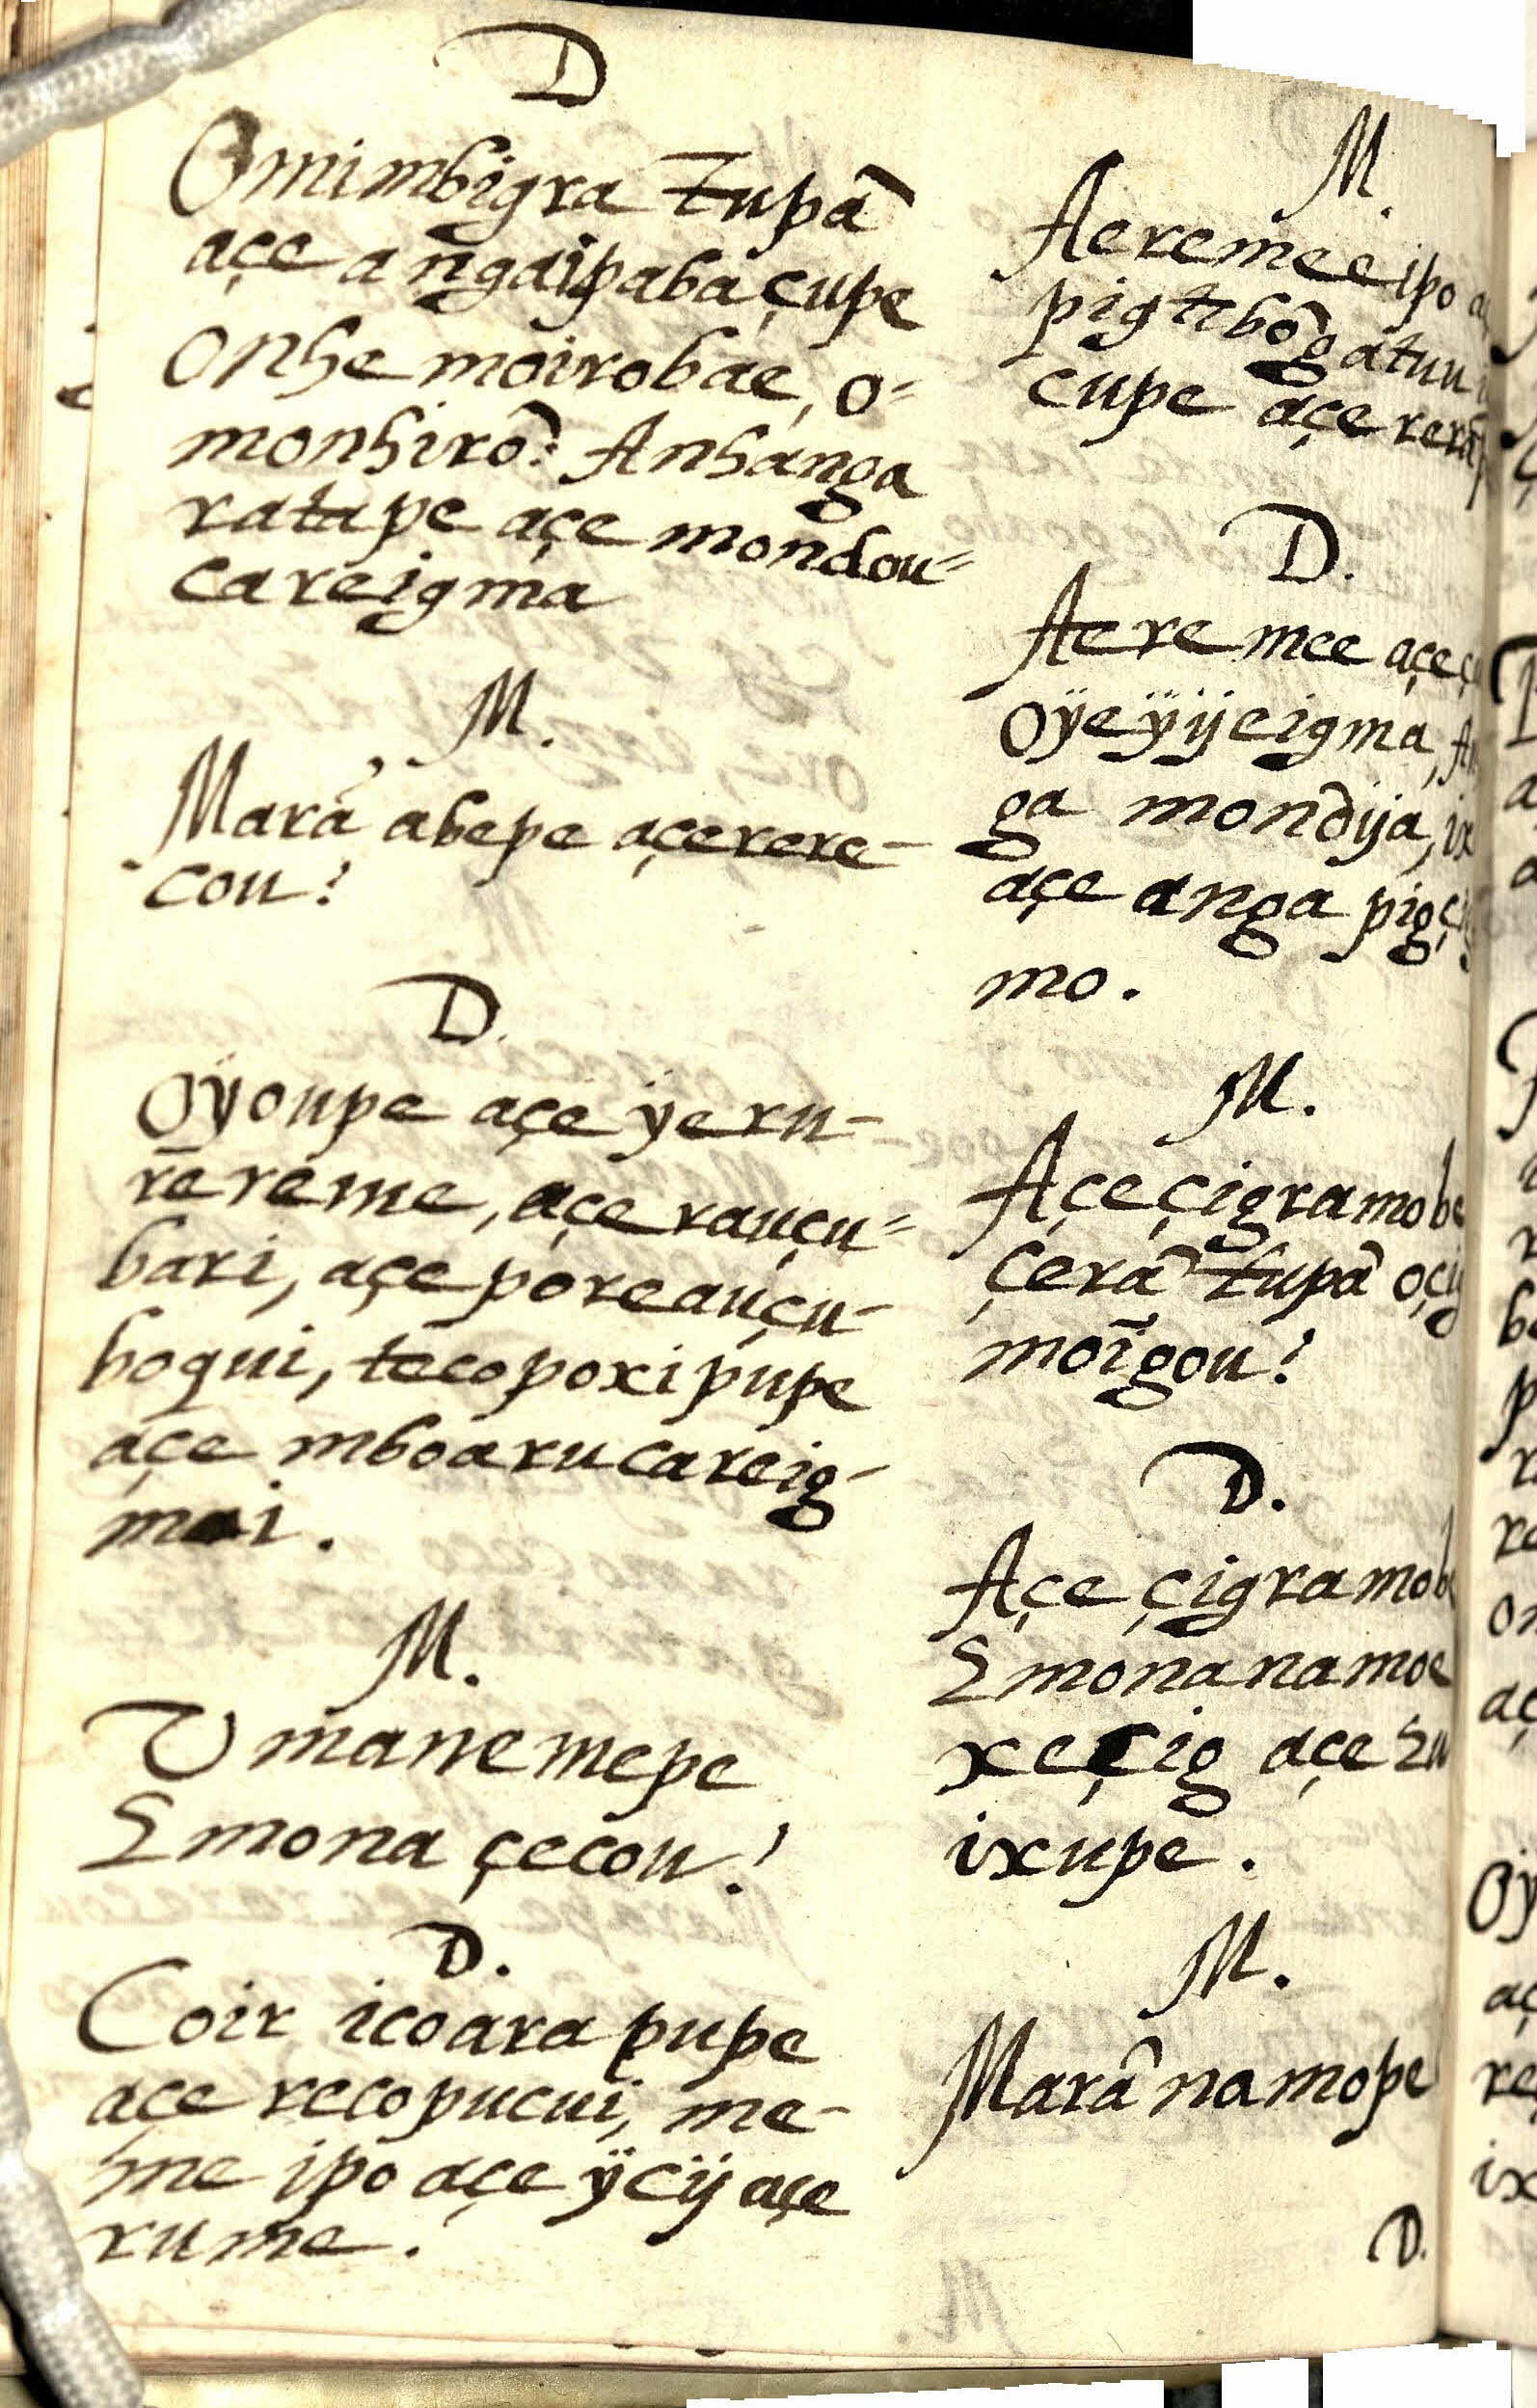 D
Omimbigra Tupã
açe angaipaba çupe
Onhe moirobae, o=
monhirõ: Anhanga
ratape açe mondou=
careigma
M.
Marã abepe açerere-
cou?
D.
Oÿoupe açe ÿeru-
rereme, açe rauçu=
bari, açe poreauçu-
boqui, teco poxi pupe
açe mboarucareig-
mai.
M.
Umanemepe
Emona çecou?
D.
Coir icoara pupe
açe recopucui, me-
me ipo açe ÿcij açe
rume.
M.
Aeremee ipo
pigtibõgatuu
cupe açe
D.
Aere mee açe
Oÿeÿijeigma,
ga mondija,
açe anga
mo.
M.
Açe çigramobe
çerã Tupã
moïgou?
D.
Açe çigramobe
Emonanamoe
xe çig açe
ixupe.
M.
Marã namope
D.